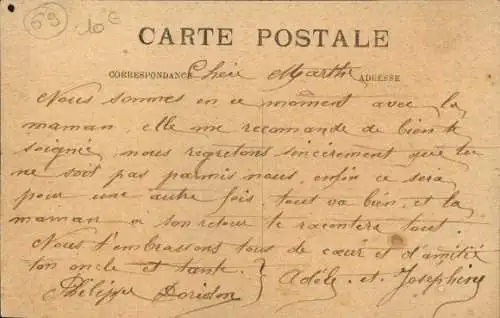 59 10 c
CARTE POSTALE
CORRESPONDANCE Chère Marthe ADRESSE
Nous sommes en ce moment avec la
maman, elle me recomande de bien te
soigné, nous regretons sincèrement que tu
ne soit pas parmis nous, enfin ce sera
pour une autre fois, tout va bien, et la
maman a son retour te racontera tout.
Nous t'embrassons tous de cœur et d'amitié
ton oncle et tante. } Adèle et Joséphine
Philippe Doridon